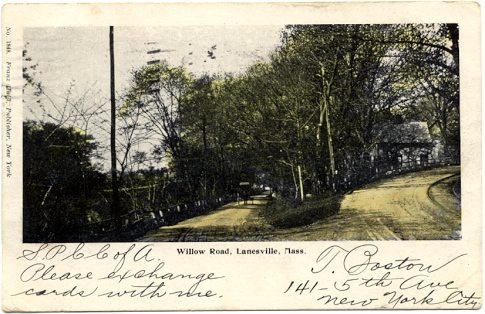 No. 1848. Franz Huld, Publisher, New York
Willow Road, Lanesville, Mass.
S.P.C.C of A
Please exchange
cards with me.
T. Boston
141-5th Ave
New York City.